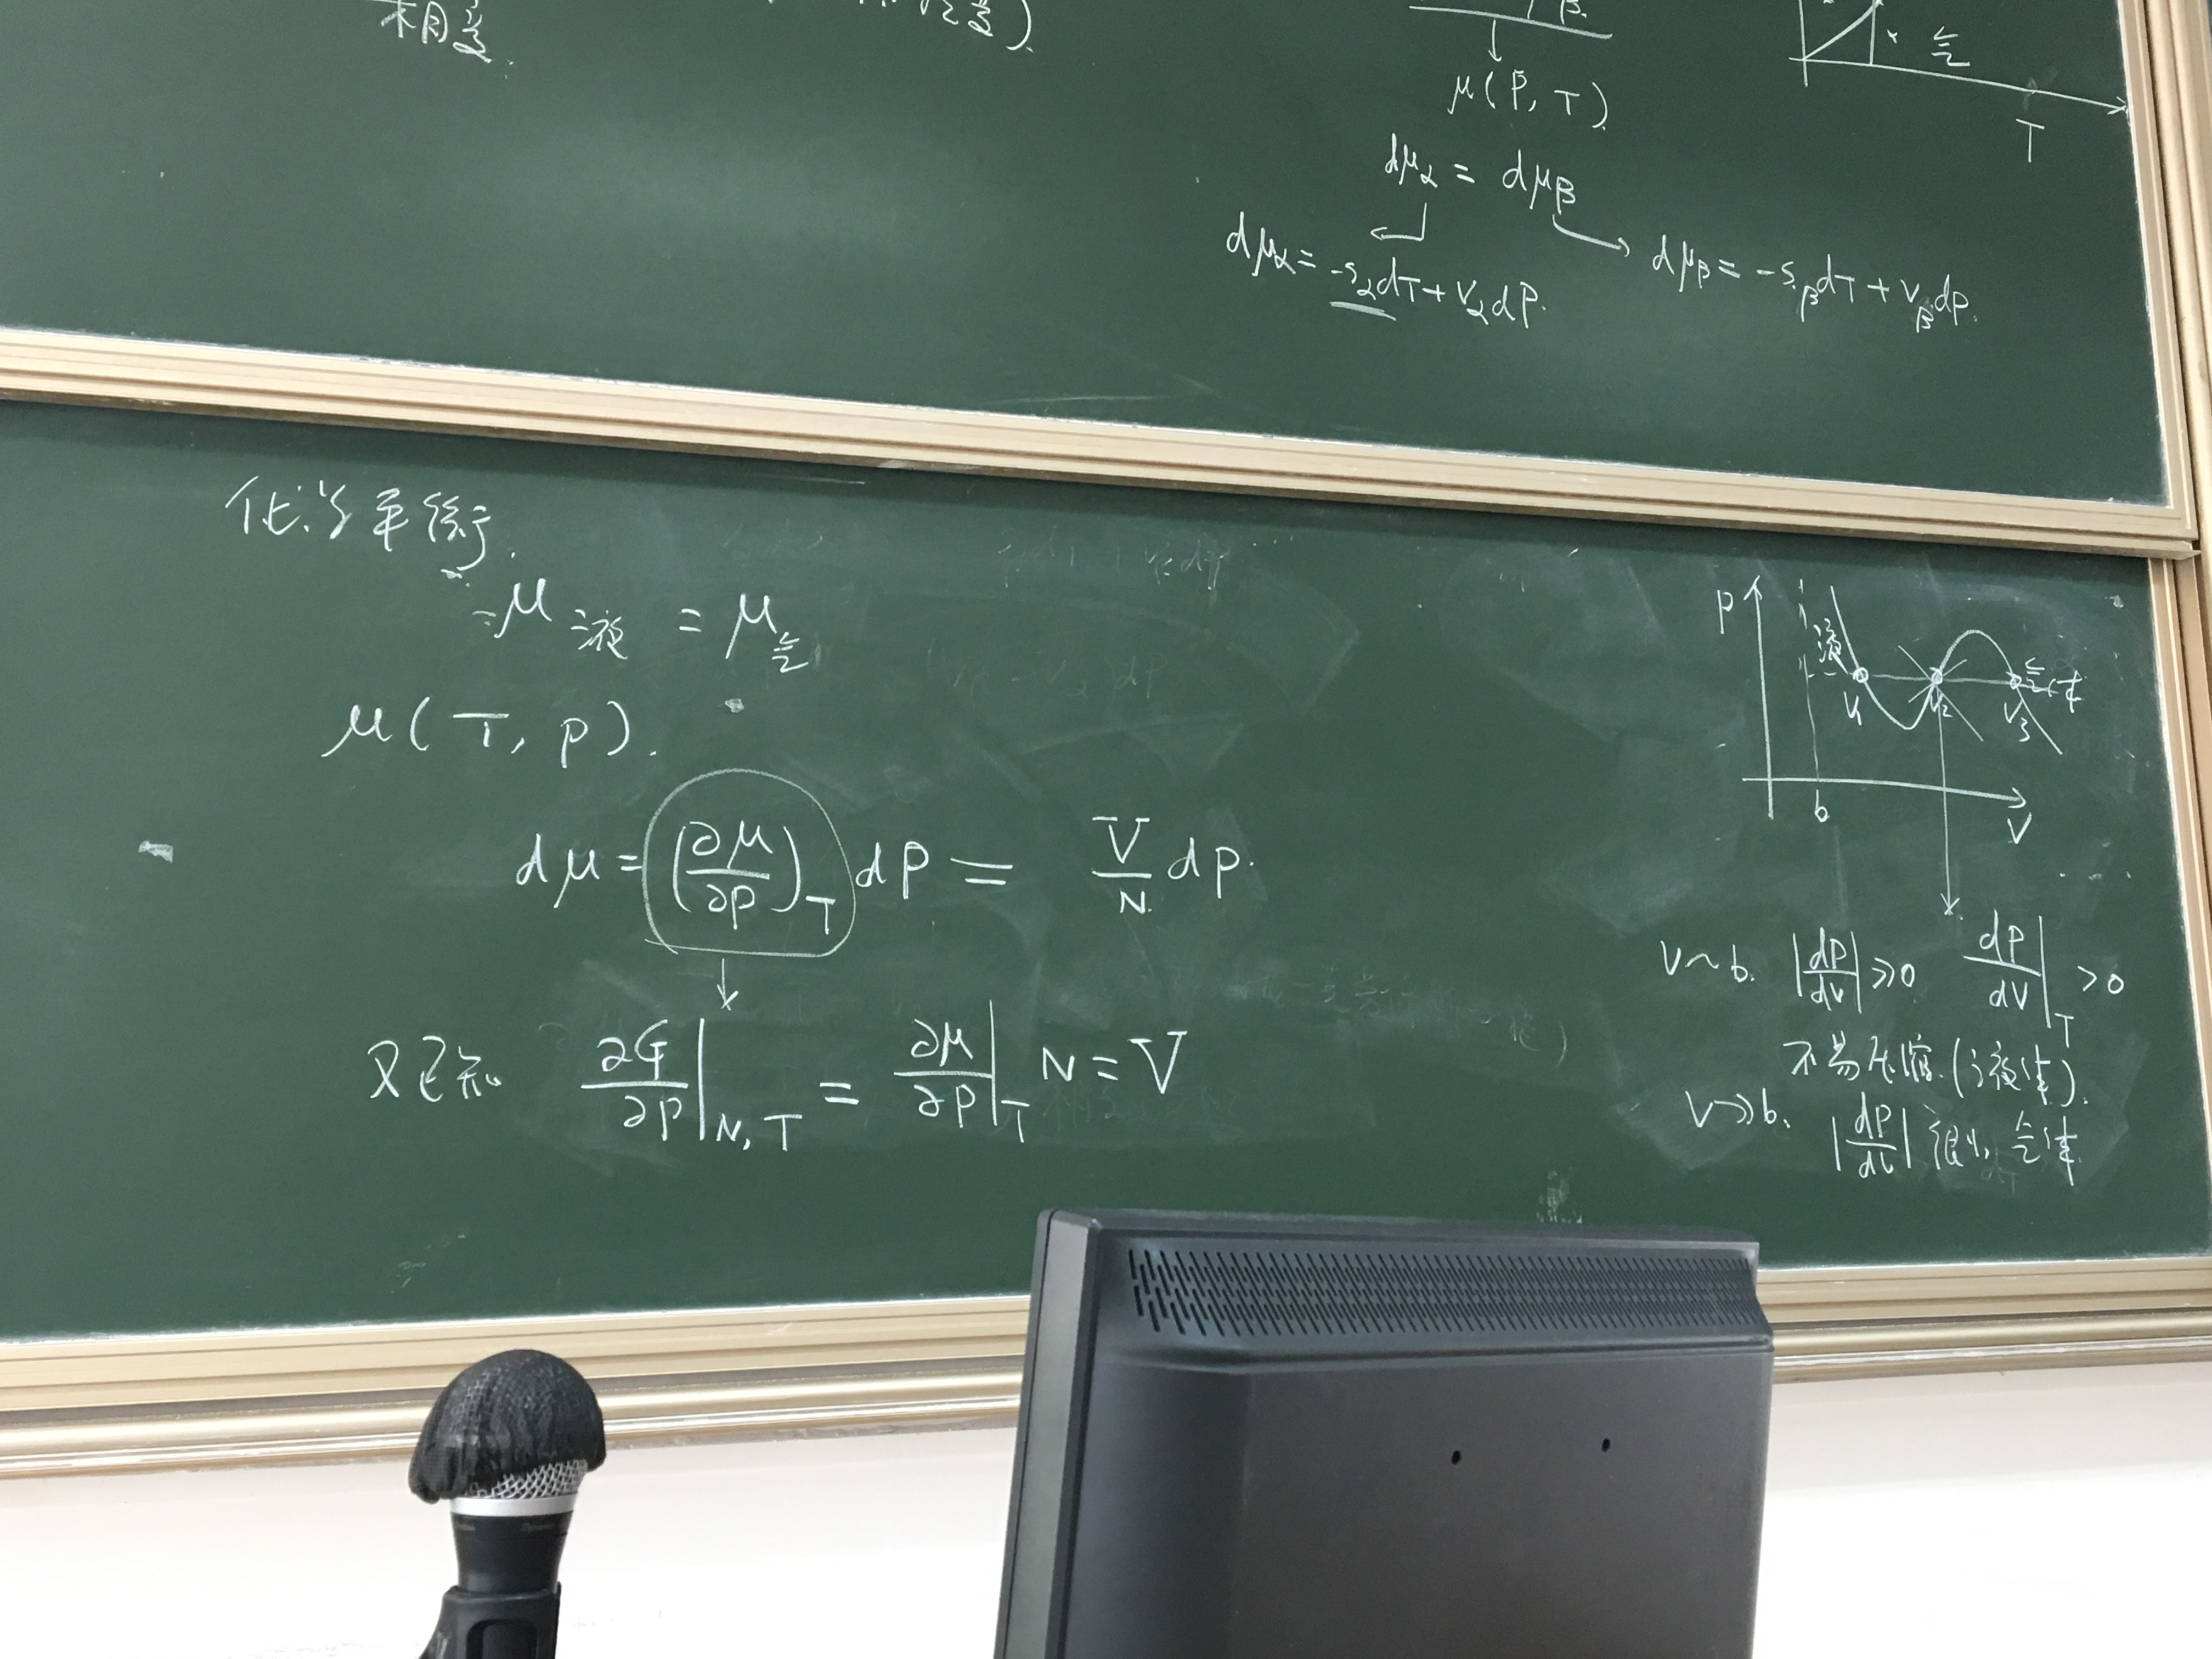 相变
变)
β
μ(P, T)
气
T
dμα = dμβ
dμα = -sαdT + vαdP.
dμβ = -sβdT + vβdP.
化学平衡.
μ液 = μ气
μ(T, P).
dμ = (∂μ/∂P)_T dP = V/N dP.
又已知 ∂G/∂P|_N,T = ∂μ/∂P|_T N = V
P
液
气体
V1 V2 V3
b
V
V~b. |dP/dV| ≫0 dP/dV|_T >0
不易压缩.(液体).
V≫b. |dP/dV| 很小, 气体